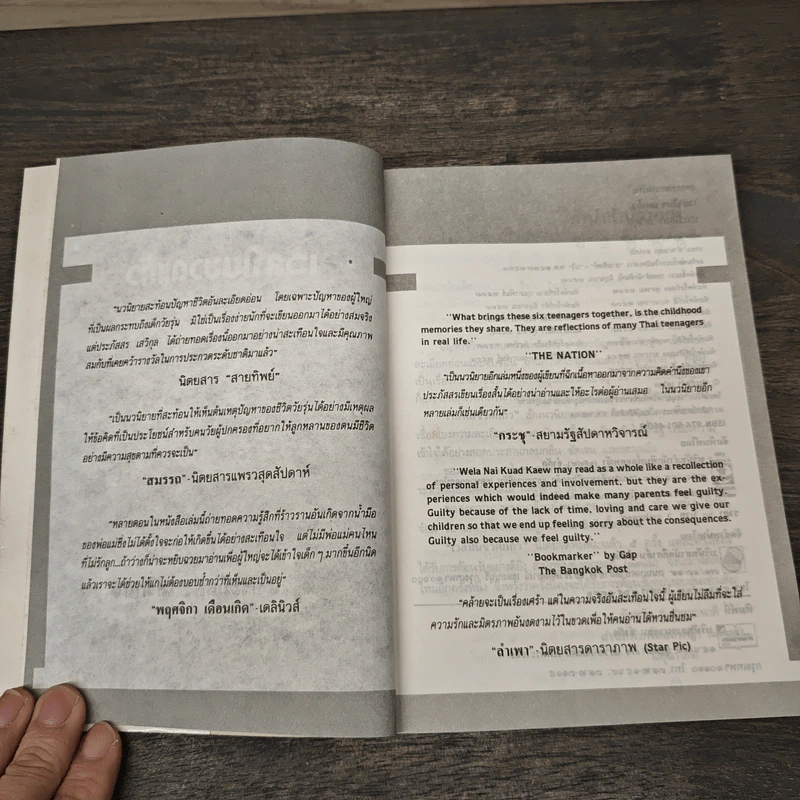 "นวนิยายสะท้อนปัญหาชีวิตอันละเอียดอ่อน โดยเฉพาะปัญหาของผู้ใหญ่
ที่เป็นผลกระทบถึงเด็กวัยรุ่น มิใช่เป็นเรื่องง่ายนักที่จะเขียนออกมาได้อย่างสมจริง
แต่ประภัสสร เสวิกุล ได้ถ่ายทอดเรื่องนี้ออกมาอย่างน่าสะเทือนใจและมีคุณภาพ
สมกับที่เคยคว้ารางวัลในการประกวดระดับชาติมาแล้ว"
นิตยสาร "สายทิพย์"
"เป็นนวนิยายที่สะท้อนให้เห็นต้นเหตุปัญหาของชีวิตวัยรุ่นได้อย่างมีเหตุผล
ให้ข้อคิดที่เป็นประโยชน์สำหรับคนวัยผู้ปกครองที่อยากให้ลูกหลานของตนมีชีวิต
อย่างมีความสุขตามที่ควรจะเป็น"
"สมรรถ"-นิตยสารแพรวสุดสัปดาห์
"หลายตอนในหนังสือเล่มนี้ถ่ายทอดความรู้สึกที่ร้าวรานอันเกิดจากน้ำมือ
ของพ่อแม่ซึ่งไม่ได้ตั้งใจจะก่อให้เกิดขึ้นได้อย่างสะเทือนใจ แต่ไม่มีพ่อแม่คนไหน
ที่ไม่รักลูก...ถ้าว่างก็น่าจะหยิบฉวยมาอ่านเพื่อผู้ใหญ่จะได้เข้าใจเด็ก ๆ มากขึ้นอีกนิด
แล้วเราจะได้ช่วยให้แกไม่ต้องบอบช้ำกว่าที่เห็นและเป็นอยู่"
"พฤศจิกา เดือนเกิด"-เดลินิวส์
"What brings these six teenagers together, is the childhood
memories they share. They are reflections of many Thai teenagers
in real life."
"THE NATION"
"เป็นนวนิยายอีกเล่มหนึ่งของผู้เขียนที่ฉีกเนื้อหาออกมาจากความคิดคำนึงของเขา
ประภัสสรเขียนเรื่องสั้นได้อย่างน่าอ่านและให้อะไรต่อผู้อ่านเสมอ ในนวนิยายอีก
หลายเล่มก็เช่นเดียวกัน"
"กระชุ"-สยามรัฐสัปดาหวิจารณ์
"Wela Nai Kuad Kaew may read as a whole like a recollection
of personal experiences and involvement, but they are the ex-
periences which would indeed make many parents feel guilty.
Guilty because of the lack of time, loving and care we give our
children so that we end up feeling sorry about the consequences.
Guilty also because we feel guilty."
"Bookmarker" by Gap
The Bangkok Post
"คล้ายจะเป็นเรื่องเศร้า แต่ในความจริงอันสะเทือนใจนี้ ผู้เขียนไม่ลืมที่จะใส่
ความรักและมิตรภาพอันงดงามไว้ในขวดเพื่อให้คนอ่านได้หวนชื่นชม"
"ลำเพา"-นิตยสารดาราภาพ (Star Pic)